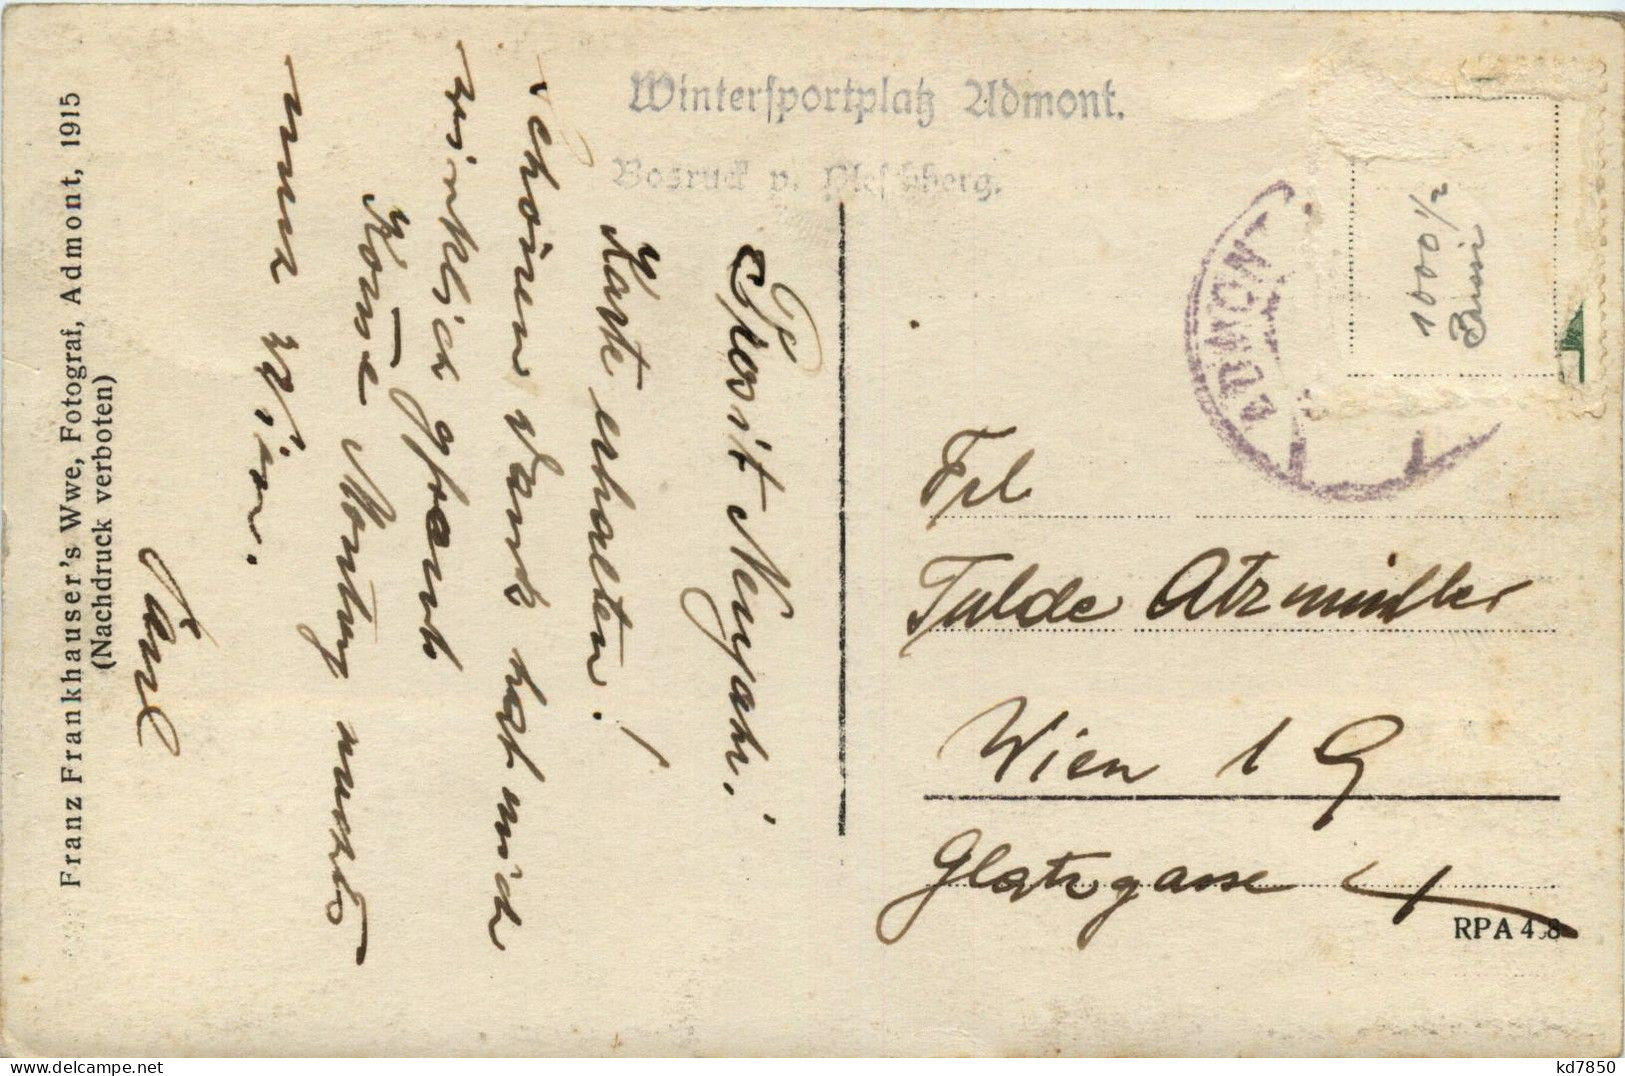 Wintersportplatz Admont.
Bosruck v. Pleschberg.
Prosit Neujahr!
Karte erhalten!
schönen Dank hat mich
wirklich gfreut
Komme Montag nachts
nach Wien.
Franz Frankhauser's Wwe, Fotograf, Admont, 1915
(Nachdruck verboten)
ADMONT
1000 1/2
Frl
Tulde Atzmüller
Wien 1 9
Glatzgasse 4
RPA 4 8
kd7850